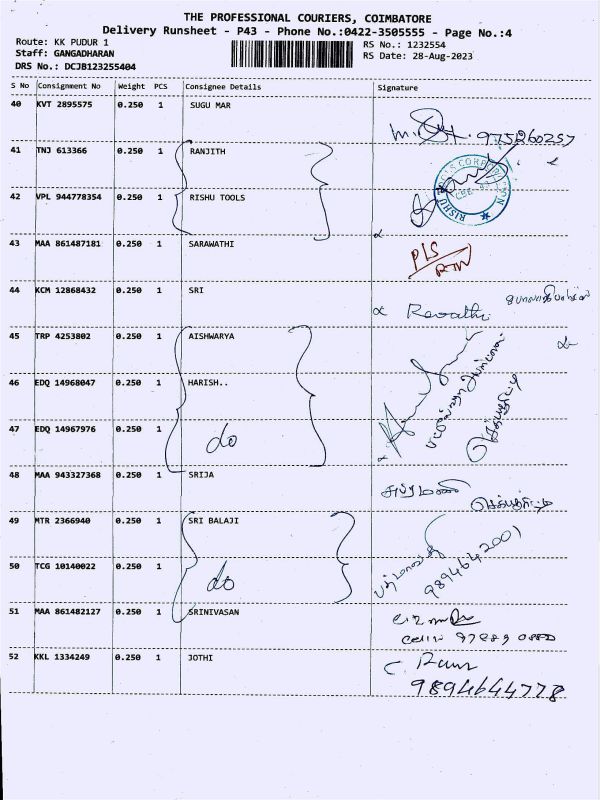 THE PROFESSIONAL COURIERS, COIMBATORE
Delivery Runsheet - P43 - Phone No.:0422-3505555 - Page No.:4
Route: KK PUDUR 1
Staff: GANGADHARAN
DRS No.: DCJB123255404
RS No.: 1232554
RS Date: 28-Aug-2023
S No Consignment No Weight PCS Consignee Details Signature
40 KVT 2895575 0.250 1 SUGU MAR
975260257
41 TNJ 613366 0.250 1 RANJITH
42 VPL 944778354 0.250 1 RISHU TOOLS
RISHU
43 MAA 861487181 0.250 1 SARAWATHI
PLS
RTN
44 KCM 12868432 0.250 1 SRI
Revathi
45 TRP 4253802 0.250 1 AISHWARYA
46 EDQ 14968047 0.250 1 HARISH..
47 EDQ 14967976 0.250 1
do
48 MAA 943327368 0.250 1 SRIJA
49 MTR 2366940 0.250 1 SRI BALAJI
50 TCG 10140022 0.250 1
do
51 MAA 861482127 0.250 1 SRINIVASAN
52 KKL 1334249 0.250 1 JOTHI
C. Ram
9894644778